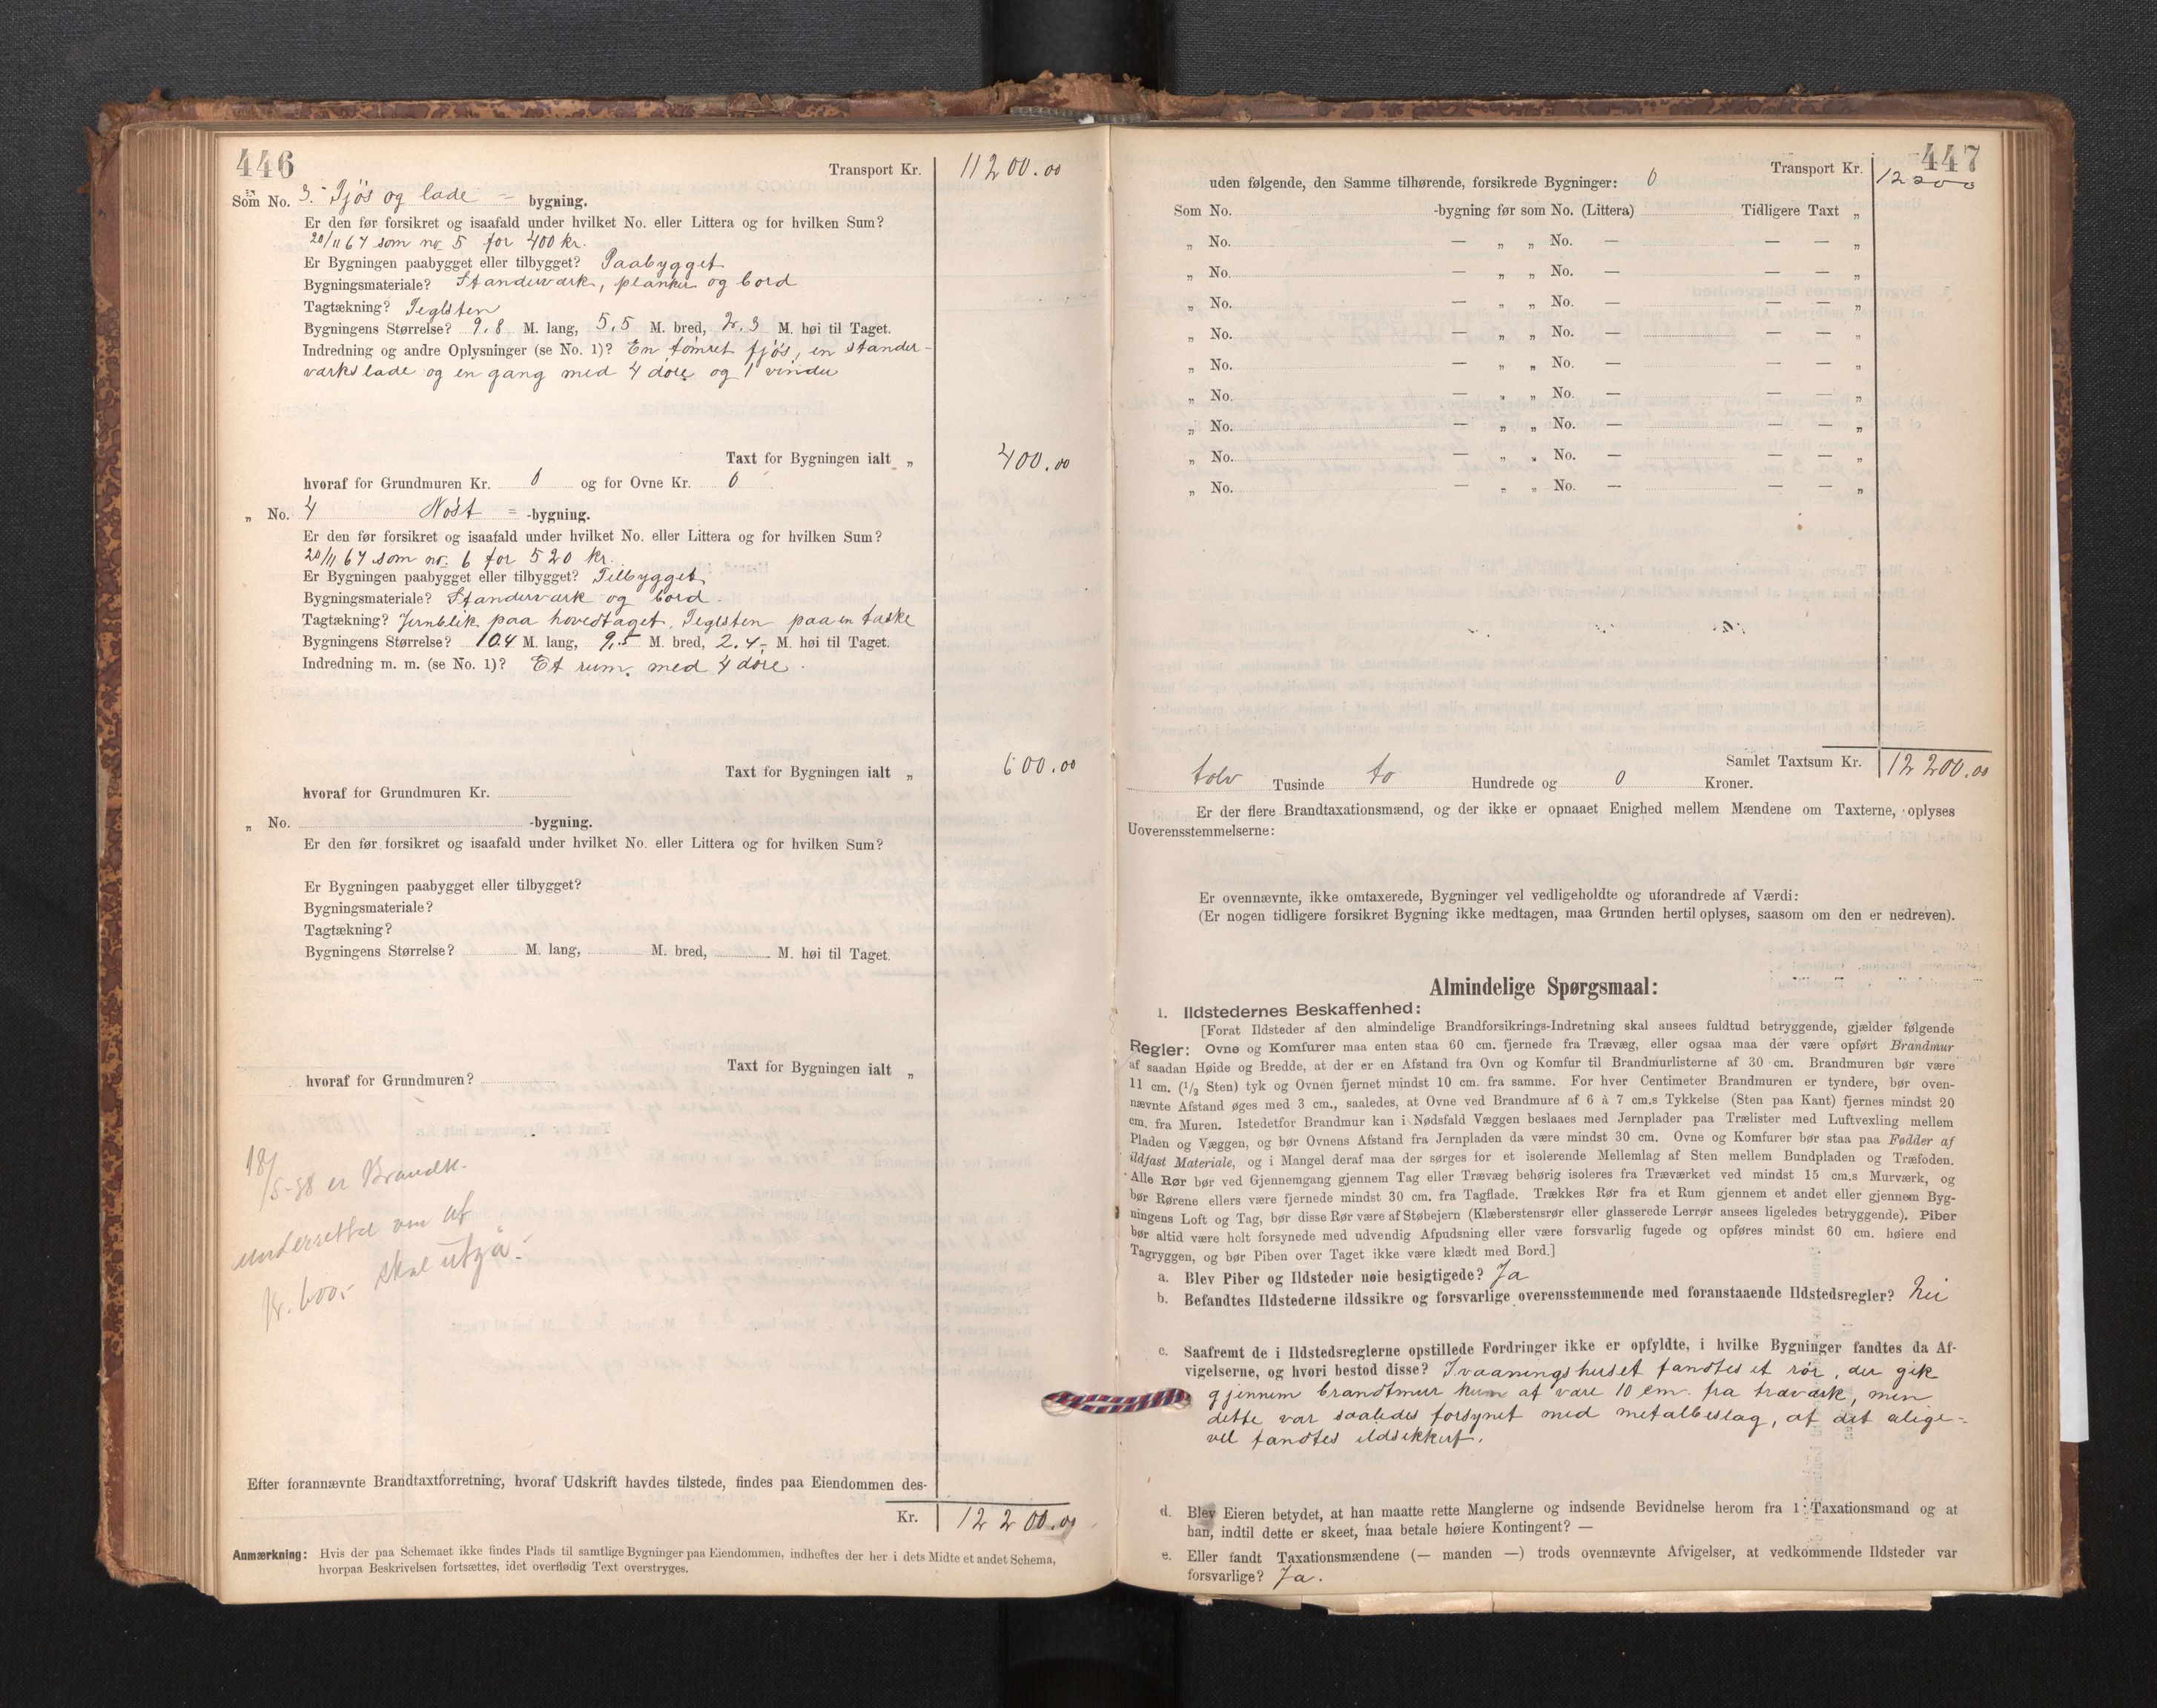 446
Transport Kr. 11200.00
Som No. 3. Fjös og lade = bygning.
Er den før forsikret og isaafald under hvilket No. eller Littera og for hvilken Sum?
20/11 67 som no 5 for 400 kr.
Er Bygningen paabygget eller tilbygget? Paabygget
Bygningsmateriale? Standerværk, planker og bord
Tagtækning? Teglsten
Bygningens Størrelse? 9,8 M. lang, 5,5 M. bred, 2,3 M. høi til Taget.
Indredning og andre Oplysninger (se No. 1)? En tømret fjös, en stander-
værkslade og en gang med 4 döre og 1 vindu
Taxt for Bygningen ialt „ 400.00
hvoraf for Grundmuren Kr. 0 og for Ovne Kr. 0
„ No. 4 Nöst = -bygning.
Er den før forsikret og isaafald under hvilket No. eller Littera og for hvilken Sum?
20/11 67 som no. 6 for 520 kr.
Er Bygningen paabygget eller tilbygget? Tilbygget
Bygningsmateriale? Standerværk og bord.
Tagtækning? Jernblik paa hovedtaget, Teglsten paa en taske
Bygningens Størrelse? 10.4 M. lang, 9,5 M. bred, 2.4- M. høi til Taget.
Indredning m. m. (se No. 1)? Et rum med 4 döre.
Taxt for Bygningen ialt „ 600.00
hvoraf for Grundmuren Kr.
„ No. -bygning.
Er den før forsikret og isaafald under hvilket No. eller Littera og for hvilken Sum?
Er Bygningen paabygget eller tilbygget?
Bygningsmateriale?
Tagtækning?
Bygningens Størrelse? M. lang, M. bred, M. høi til Taget.
Taxt for Bygningen ialt „
hvoraf for Grundmuren?
18/5-38 er Brandk.
underrettet om at
kr. 600,- skal utgå.-
Efter forannævnte Brandtaxtforretning, hvoraf Udskrift havdes tilstede, findes paa Eiendommen des-
Kr. 12 200.00
Anmærkning: Hvis der paa Schemaet ikke findes Plads til samtlige Bygninger paa Eiendommen, indheftes der her i dets Midte et andet Schema,
hvorpaa Beskrivelsen fortsættes, idet overflødig Text overstryges.
447
Transport Kr. 12200
uden følgende, den Samme tilhørende, forsikrede Bygninger: 0
Som No. -bygning før som No. (Littera) Tidligere Taxt „
„ No. — „ „ No. — — — „
„ No. — „ „ No. — — — „
„ No. — „ „ No. — — — „
„ No. — „ „ No. — — — „
„ No. — „ „ No. — — — „
„ No. — „ „ No. — — — „
„ No. — „ „ No. — — — „
„ No. — „ „ No. — — — „
„ No. — „ „ No. — — — „
Samlet Taxtsum Kr. 12 200.00
tolv Tusinde to Hundrede og 0 Kroner.
Er der flere Brandtaxationsmænd, og der ikke er opnaaet Enighed mellem Mændene om Taxterne, oplyses
Uoverensstemmelserne:
Er ovennævnte, ikke omtaxerede, Bygninger vel vedligeholdte og uforandrede af Værdi:
(Er nogen tidligere forsikret Bygning ikke medtagen, maa Grunden hertil oplyses, saasom om den er nedreven).
Almindelige Spørgsmaal:
1. Ildstedernes Beskaffenhed:
[Forat Ildsteder af den almindelige Brandforsikrings-Indretning skal ansees fuldtud betryggende, gjælder følgende
Regler: Ovne og Komfurer maa enten staa 60 cm. fjernede fra Trævæg, eller ogsaa maa der være opført Brandmur
af saadan Høide og Bredde, at der er en Afstand fra Ovn og Komfur til Brandmurlisterne af 30 cm. Brandmuren bør være
11 cm. (1/2 Sten) tyk og Ovnen fjernet mindst 10 cm. fra samme. For hver Centimeter Brandmuren er tyndere, bør oven-
nævnte Afstand øges med 3 cm., saaledes, at Ovne ved Brandmure af 6 à 7 cm.s Tykkelse (Sten paa Kant) fjernes mindst 20
cm. fra Muren. Istedetfor Brandmur kan i Nødsfald Væggen beslaaes med Jernplader paa Trælister med Luftvexling mellem
Pladen og Væggen, og bør Ovnens Afstand fra Jernpladen da være mindst 30 cm. Ovne og Komfurer bør staa paa Fødder af
ildfast Materiale, og i Mangel deraf maa der sørges for et isolerende Mellemlag af Sten mellem Bundpladen og Træfoden.
Alle Rør bør ved Gjennemgang gjennem Tag eller Trævæg behørig isoleres fra Træværket ved mindst 15 cm.s Murværk, og
bør Rørene ellers være fjernede mindst 30 cm. fra Tagflade. Trækkes Rør fra et Rum gjennem et andet eller gjennem Byg-
ningens Loft og Tag, bør disse Rør være af Støbejern (Klæberstensrør eller glasserede Lerrør ansees ligeledes betryggende). Piber
bør altid være helt forsynede med udvendig Afpudsning eller være forsvarlig fugede og opføres mindst 60 cm. høiere end
Tagryggen, og bør Piben over Taget ikke være klædt med Bord.]
a. Blev Piber og Ildsteder nøie besigtigede? Ja
b. Befandtes Ildstederne ildssikre og forsvarlige overensstemmende med foranstaaende Ildstedsregler? Nei
c. Saafremt de i Ildstedsreglerne opstillede Fordringer ikke er opfyldte, i hvilke Bygninger fandtes da Af-
vigelserne, og hvori bestod disse? I vaaningshuset fandtes et rör, der gik
gjennem brandtmur kun at være 10 cm. fra træværk, men
dette var saaledes forsynet med metalbeslag, at det alige=
vel fandtes ildsikkert.
d. Blev Eieren betydet, at han maatte rette Manglerne og indsende Bevidnelse herom fra 1 Taxationsmand og at
han, indtil dette er skeet, maa betale høiere Kontingent? —
e. Eller fandt Taxationsmændene (— manden —) trods ovennævnte Afvigelser, at vedkommende Ildsteder var
forsvarlige? Ja.